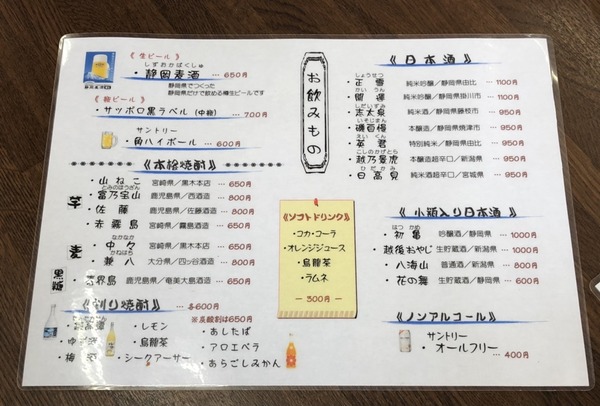 《生ビール》
しずおかばくしゅ
・静岡麦酒 … 650円
静岡県でつくって
静岡県だけで飲める樽生ビールです
《瓶ビール》
・サッポロ黒ラベル(中瓶) … 700円
サントリー
・角ハイボール … 600円
《本格焼酎》
芋
・山ねこ 宮崎県/黒木本店 … 650円
とみのほうざん
・富乃宝山 鹿児島県/西酒造 … 800円
・佐藤 鹿児島県/佐藤酒造 … 800円
・赤霧島 宮崎県/霧島酒造 … 650円
麦
なかなか
・中々 宮崎県/黒木本店 … 650円
かねはち
・兼八 大分県/四ッ谷酒造 … 800円
黒糖
界島 鹿児島県/奄美大島酒造 … 650円
《割り焼酎》 … 各600円
※炭酸割は650円
・レモン
・ゆず
・烏龍茶
・梅
・シークアーサー
・あしたば
・アロエベラ
・あらごしみかん
お飲みもの
《ソフトドリンク》
・コカ・コーラ
・オレンジジュース
・烏龍茶
・ラムネ
― 300円 ―
《日本酒》
しょうせつ
・正雪 純米吟醸/静岡県由比 … 1100円
かい うん
・開運 純米吟醸/静岡県掛川市 … 1100円
しだいずみ
・志太泉 純米酒/静岡県藤枝市 … 950円
いそじまん
・磯自慢 本醸造/静岡県焼津市 … 950円
えい くん
・英君 特別純米/静岡県由比 … 950円
こしのかげとら
・越乃景虎 本醸造超辛口/新潟県 … 950円
ひ だか み
・日高見 純米酒超辛口/宮城県 … 950円
《小瓶入り日本酒》
はつ かめ
・初亀 吟醸酒/静岡県 … 1000円
・越後おやじ 生貯蔵酒/新潟県 … 1000円
・八海山 普通酒/新潟県 … 800円
・花の舞 生貯蔵酒/静岡県 … 600円
《ノンアルコール》
サントリー
・オールフリー … 400円